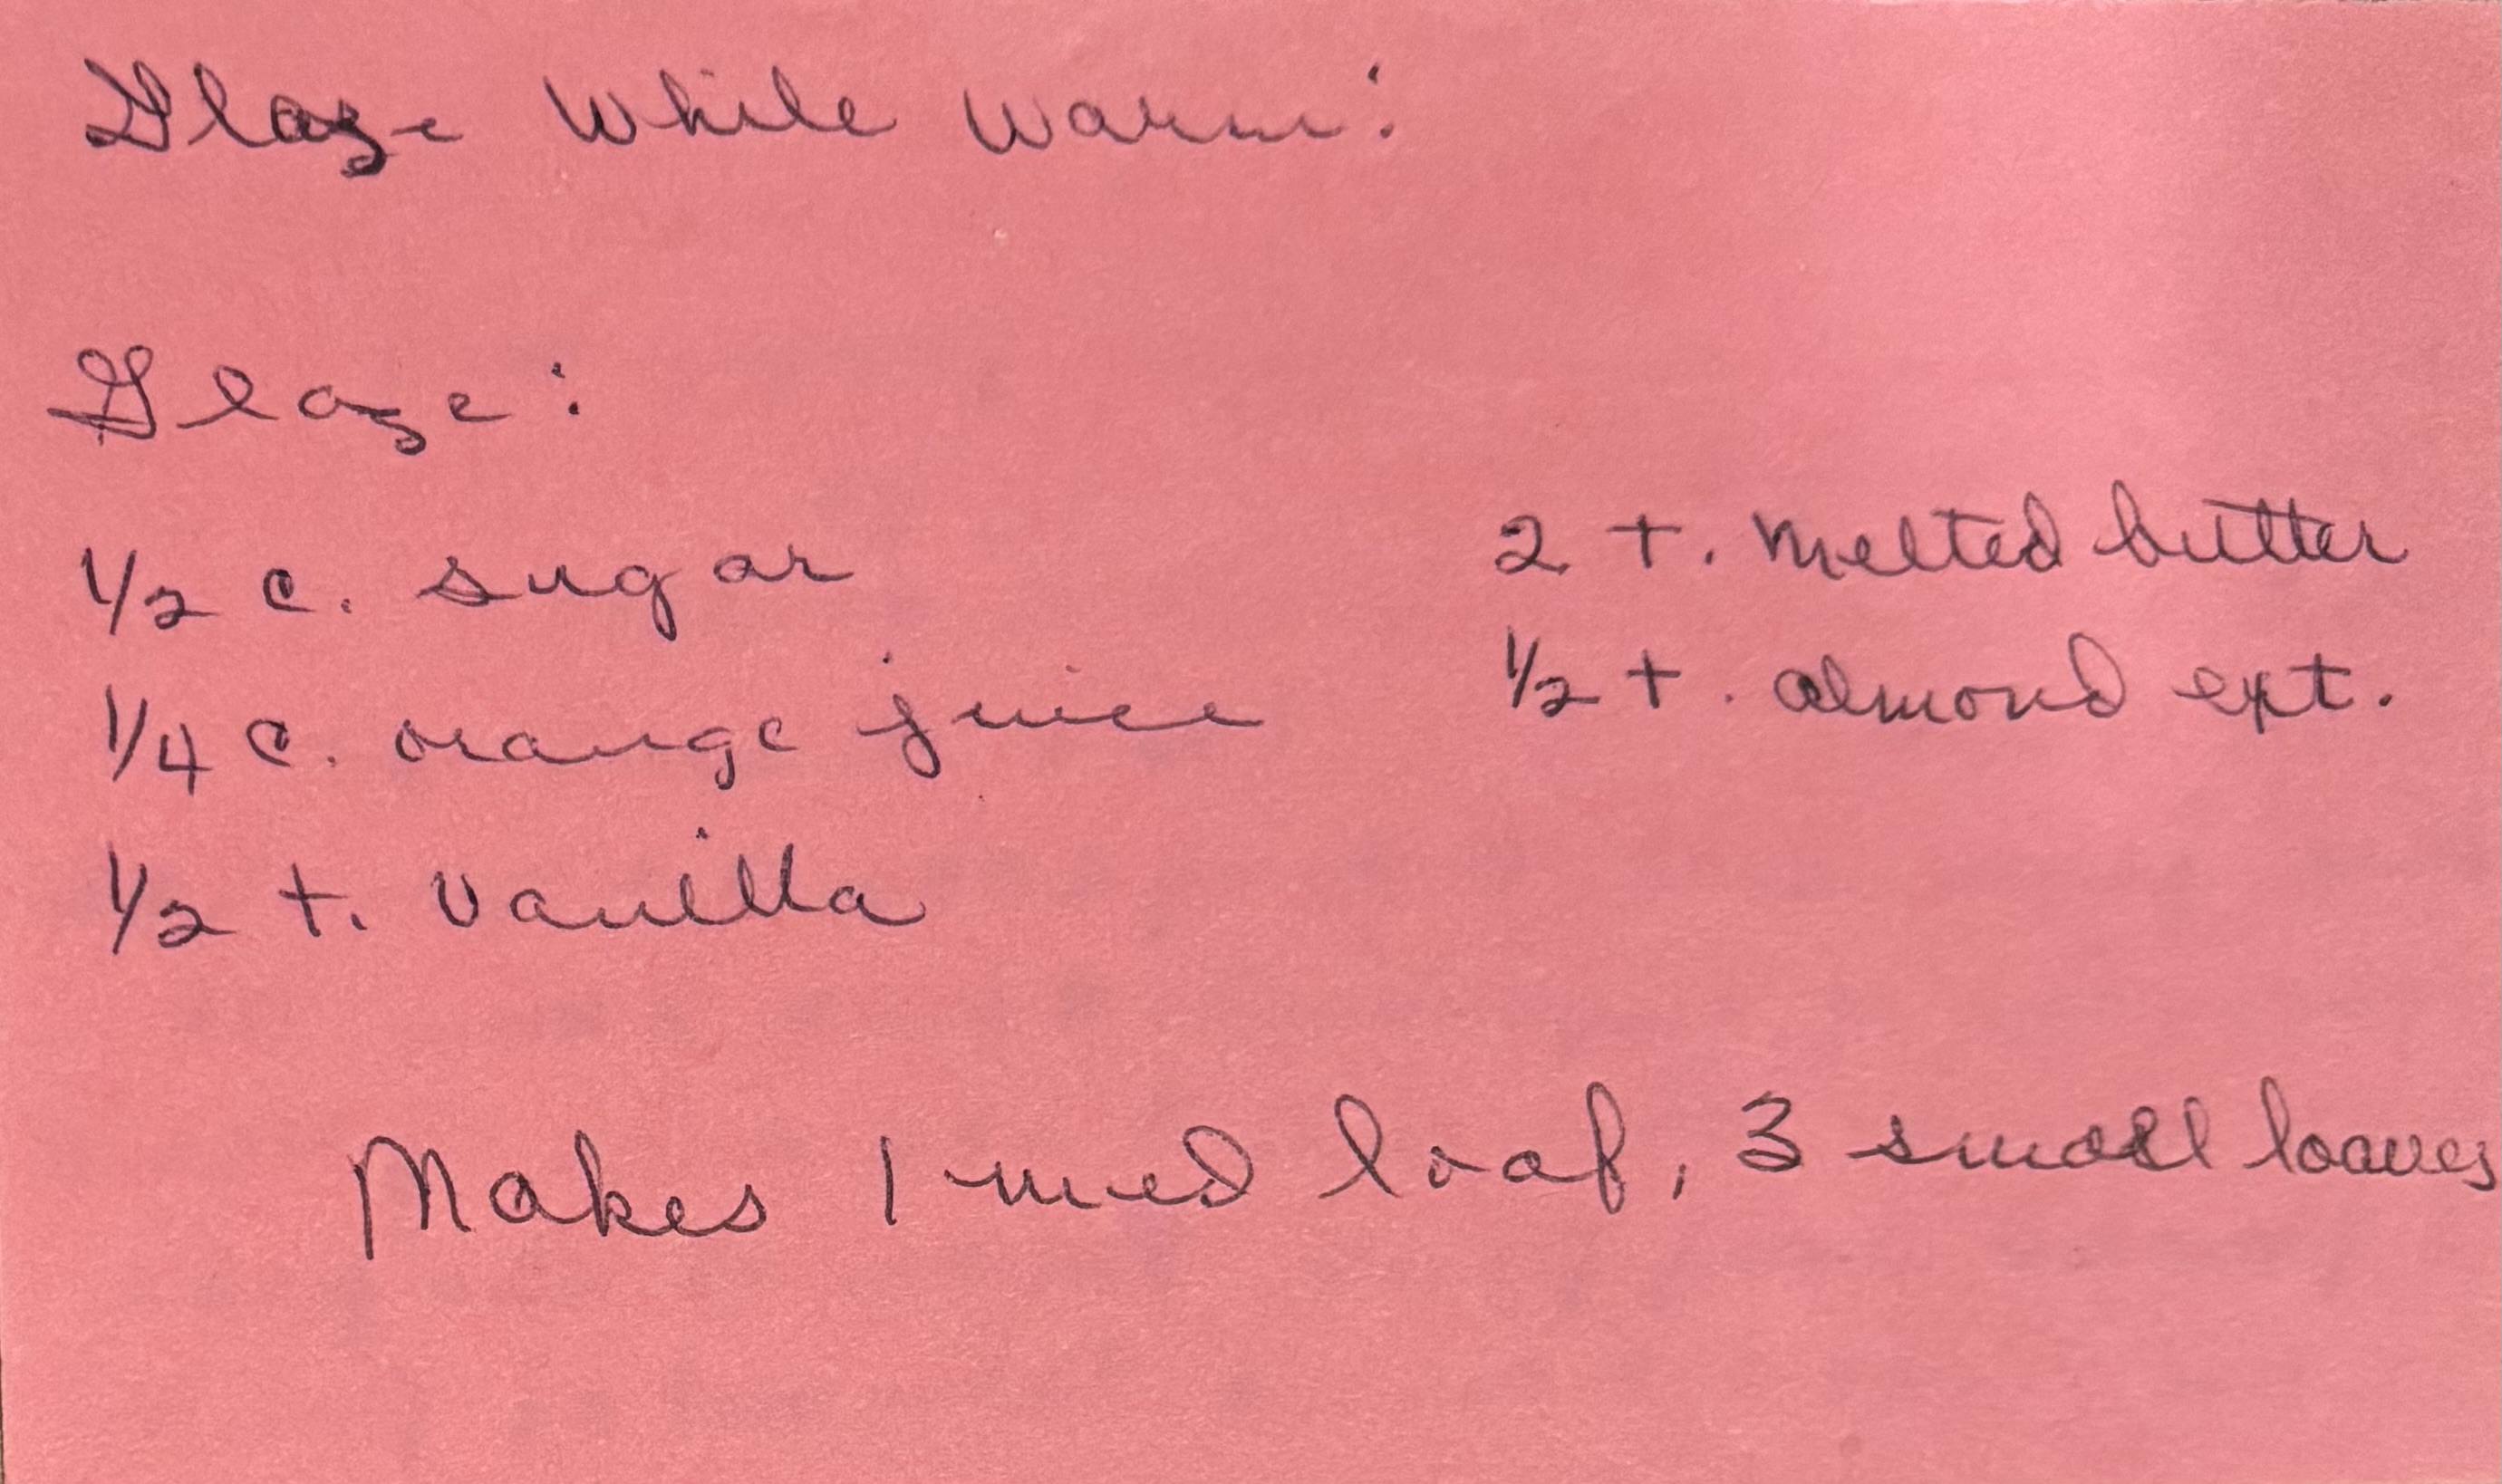 Glaze While Warm:
Glaze:
1/2 c. sugar
1/4 c. orange juice
1/2 t. vanilla
2 t. melted butter
1/2 t. almond ext.
Makes 1 med loaf, 3 small loaves